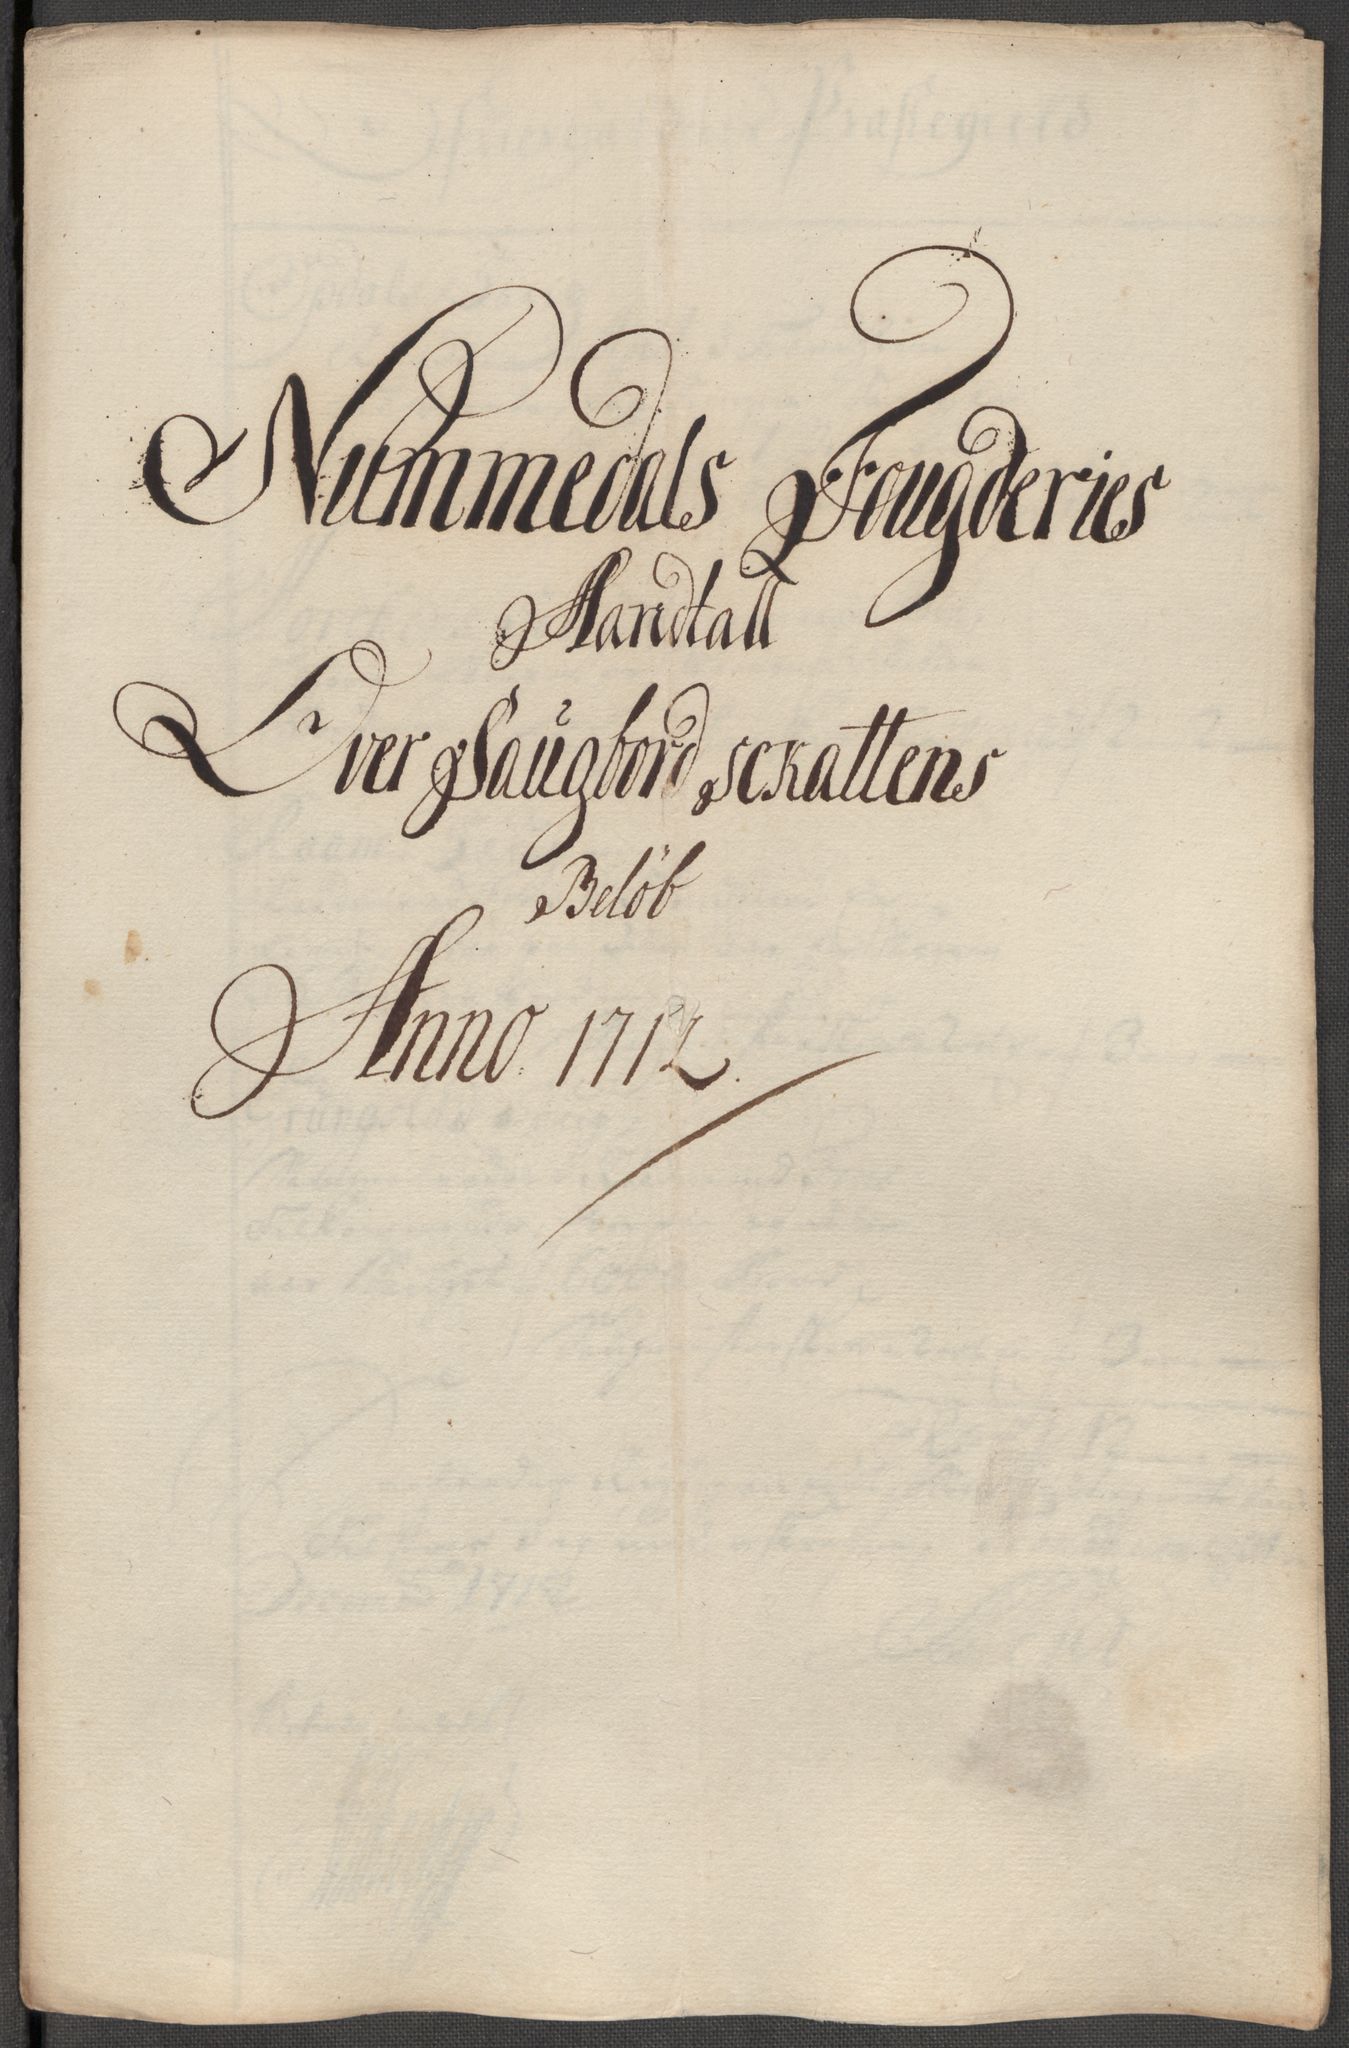 Nummedals Fougderies
Mandtall
Over Saugbord sckattens
Belöb
Anno 1712.